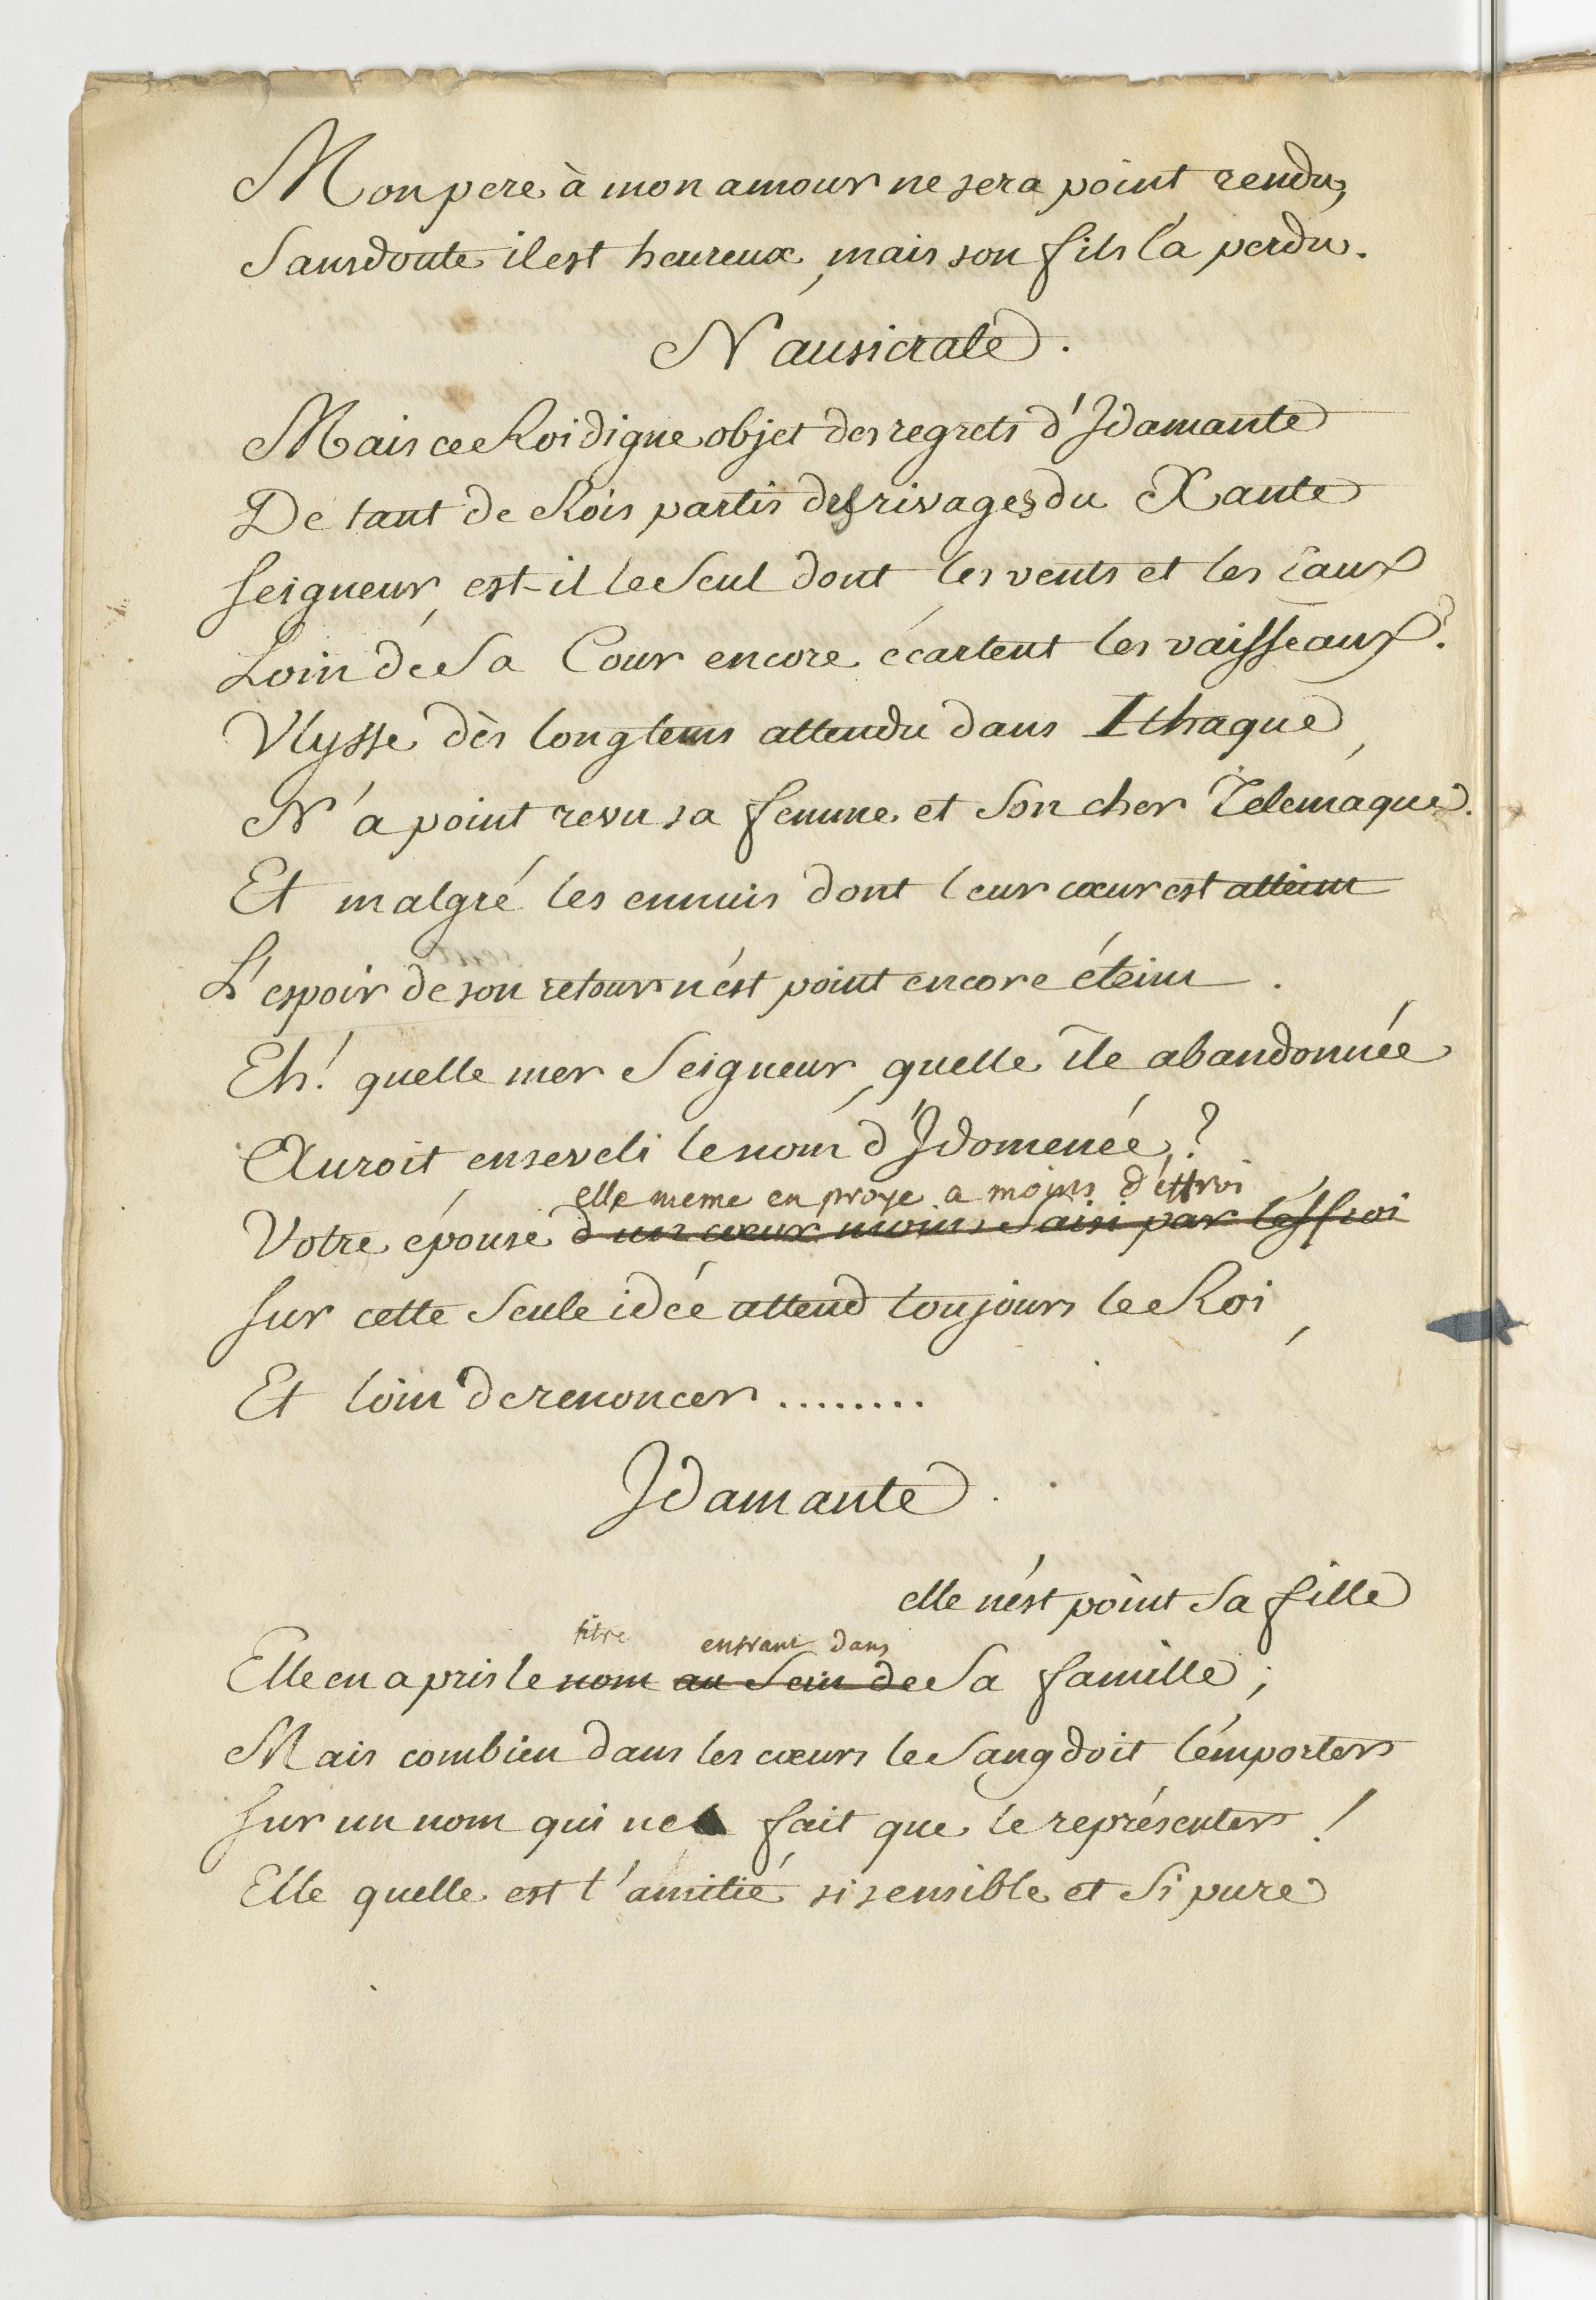 Mon pere à mon amour ne sera point rendu,
Sans doute il est heureux, mais son fils l'a perdu.
Nausicrate.
Mais ce Roi digne objet des regrets d'Idamante
De tant de Rois partis des rivages du Xante
Seigneur, est-il le Seul dont les vents et les Eaux
Loin de Sa Cour encore écartent les vaisseaux?
Ulysse dès longtems attendu dans Ithaque,
N'a point revu sa femme et Son cher Telemaque.
Et malgré les ennuis dont leur cœur est atteint
L'espoir de son retour n'est point encore éteint.
Eh! quelle mer Seigneur, quelle île abandonnée
Auroit enseveli le nom d'Idomenée?
elle meme en proye a moins d'effroi
Votre épouse d'un cœur moins Saisi par l'effroi
Sur cette Seule idée attend toujours le Roi,
Et loin de renoncer ........
Idamante.
elle n'est point Sa fille
titre entrant dans
Elle en a pris le nom au Sein de Sa famille;
Mais combien dans les cœurs le Sang doit l'emporter
Sur un nom qui ne fait que le représenter!
Elle quelle est l'amitié si sensible et Si pure